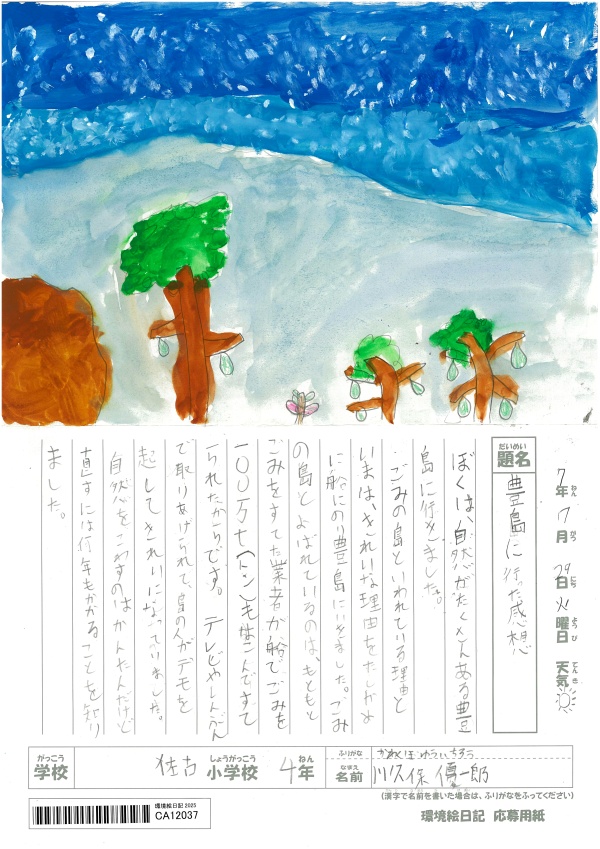 7年 7月 29日 火曜日 天気
ねん がつ にち ようび てんき
だいめい
題名
豊島に行った感想
ぼくは、自然がたくさんある豊
島に行きました。
ごみの島といわれている理由と
いまは、きれいな理由をたしかめ
に船にのり豊島にいきました。ごみ
の島とよばれているのは、もともと
ごみをすてた業者が船でごみを
100万t(トン)もはこんですて
られたからです。テレビやしんぶん
で取りあげられて、島の人がデモを
起してきれいになっていました。
自然をこわすのはかんたんだけど
直すには何年もかかることを知り
ました。
がっこう しょうがっこう ねん
学校 小学校 4年
ふりがな かわくぼ ゆういちろう
なまえ
名前 川久保 優一郎
(漢字で名前を書いた場合は、ふりがなをふってください)
環境絵日記2025
CA12037
環境絵日記 応募用紙